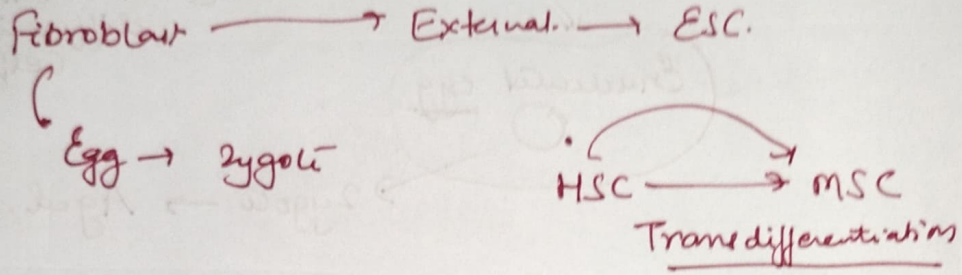 Fibroblast → External. → ESC.
Egg → Zygote
HSC → MSC
Transdifferentiation